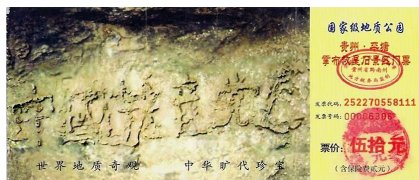 中国共产党
世界地质奇观 中华旷代珍宝
国家级地质公园
贵州·平塘
掌布藏字石景区门票
发票代码:252270558111
发票号码:00008306
票价:伍拾元
(含保险费贰元)